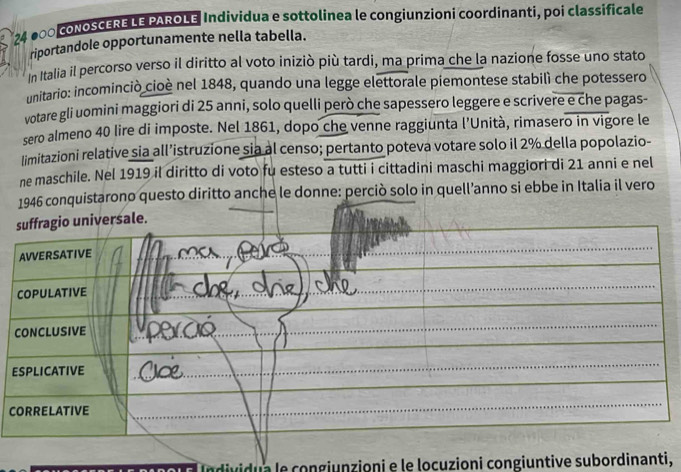 24 CONOSCERE LE PAROLE Individua e sottolinea le congiunzioni coordinanti, poi classificale
riportandole opportunamente nella tabella.
In Italia il percorso verso il diritto al voto iniziò più tardi, ma prima che la nazione fosse uno stato
unitario: incominciò cioè nel 1848, quando una legge elettorale piemontese stabilì che potessero
votare gli uomini maggiori di 25 anni, solo quelli però che sapessero leggere e scrivere e che pagas-
sero almeno 40 lire di imposte. Nel 1861, dopo che venne raggiunta l'Unità, rimasero in vigore le
limitazioni relative sia all'istruzione sia al censo; pertanto poteva votare solo il 2% della popolazio-
ne maschile. Nel 1919 il diritto di voto fu esteso a tutti i cittadini maschi maggiori di 21 anni e nel
1946 conquistarono questo diritto anche le donne: perciò solo in quell'anno si ebbe in Italia il vero
suffragio universale.
AVVERSATIVE ma, però
COPULATIVE che, che, che
CONCLUSIVE perciò
ESPLICATIVE Cioè
CORRELATIVE
Individua le congiunzioni e le locuzioni congiuntive subordinanti,